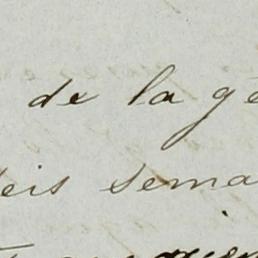 de la ge
seis sema